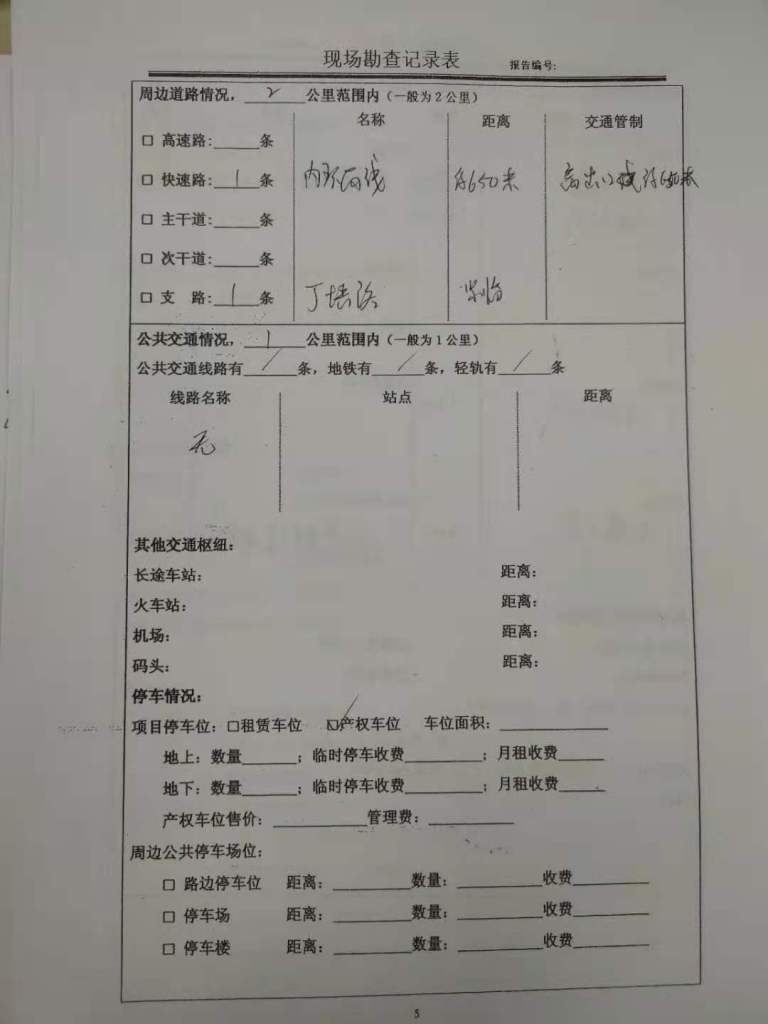 现场勘查记录表 报告编号:
周边道路情况，2公里范围内（一般为2公里）
名称 距离 交通管制
□ 高速路:______条
□ 快速路:1条 650米
□ 主干道:______条
□ 次干道:______条
□ 支 路:1条 丁 路
公共交通情况，1公里范围内（一般为1公里）
公共交通线路有/条，地铁有/条，轻轨有/条
线路名称 站点 距离
无
其他交通枢纽:
长途车站: 距离:
火车站: 距离:
机场: 距离:
码头: 距离:
停车情况:
项目停车位: □租赁车位 ☑产权车位 车位面积:____________
地上: 数量______; 临时停车收费_________; 月租收费_____
地下: 数量______; 临时停车收费_________; 月租收费_____
产权车位售价: ___________管理费: __________
周边公共停车场位:
□ 路边停车位 距离: _________数量: __________收费_________
□ 停车场 距离: _________数量: __________收费_________
□ 停车楼 距离: _________数量: __________收费_________
5